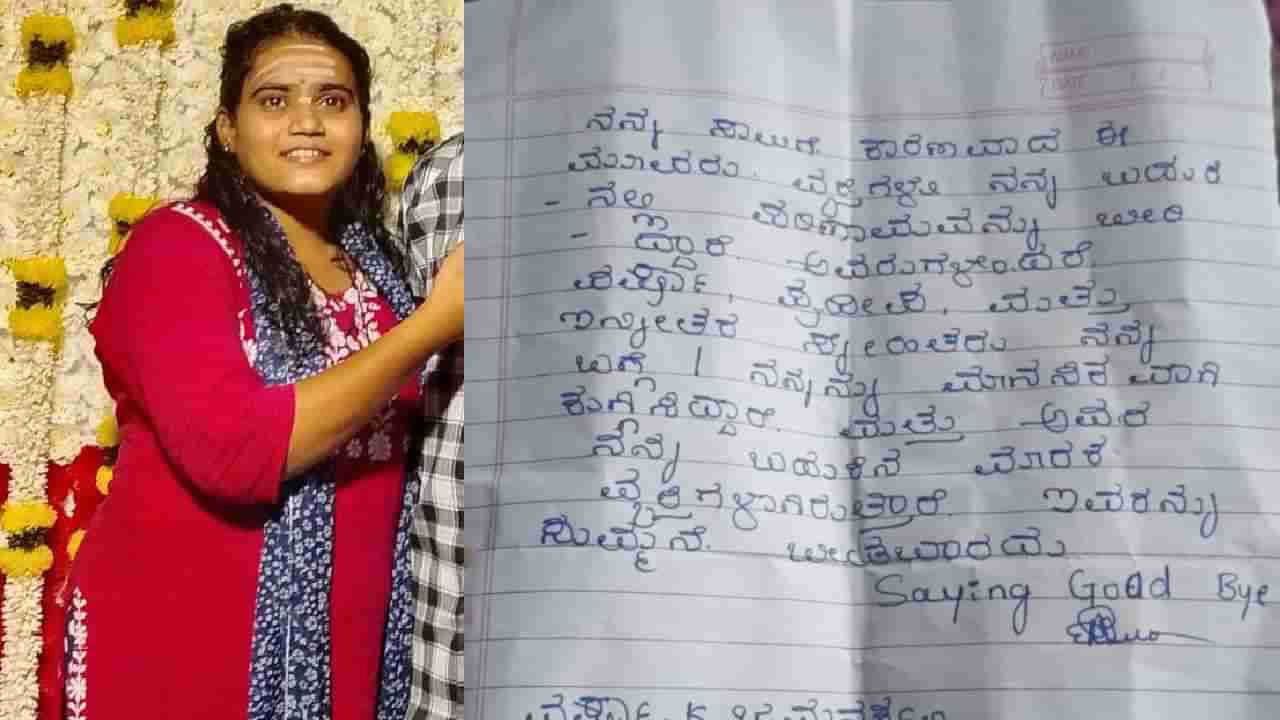 NAME
DATE
ನನ್ನ ಸಾವಿಗೆ ಕಾರಣವಾದ ಈ
ಮೂವರು. ವ್ಯಕ್ತಿಗಳು ನನ್ನ ಬದುಕಿ
- ನಲ್ಲಿ ಪರಿಣಾಮವನ್ನು ಬೀರಿ
- ದ್ದಾರೆ. ಅವರುಗಳೆಂದರೆ
ಪ್ರದೀಪ, ಮತ್ತು
ಇನ್ನೀತರ ಸ್ನೇಹಿತರು ನನ್ನ
ಬಗ್ಗೆ / ನನ್ನನ್ನು ಮಾನಸಿಕವಾಗಿ
ಕುಗ್ಗಿಸಿದ್ದಾರೆ. ಮತ್ತು ಅವರ
ನನ್ನ ಬದುಕಿನ ಮಾರಕ
ವ್ಯಕ್ತಿಗಳಾಗಿರುತ್ತಾರೆ. ಇವರನ್ನು
ಸುಮ್ಮನೆ. ಬೀಡಬಾರದು
Saying Good Bye